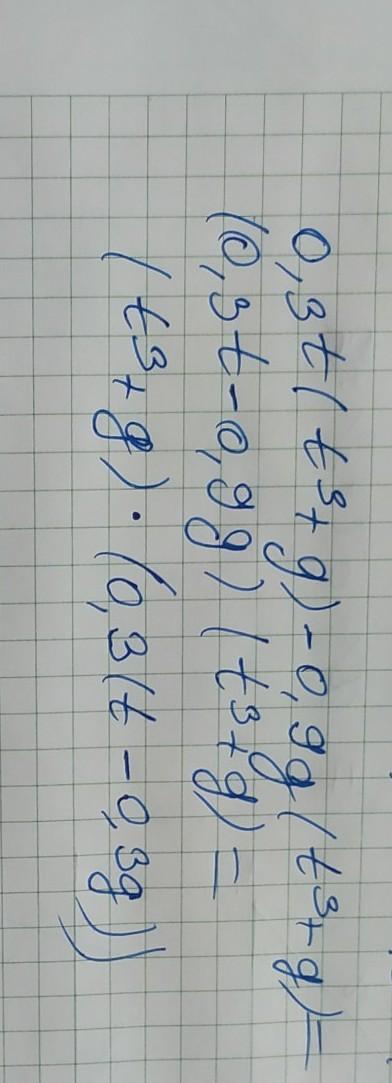 0,3t(t³+g)-0,9g(t³+g)=
(0,3t-0,9g)(t³+g)=
(t³+g)·(0,3(t-0,3g))